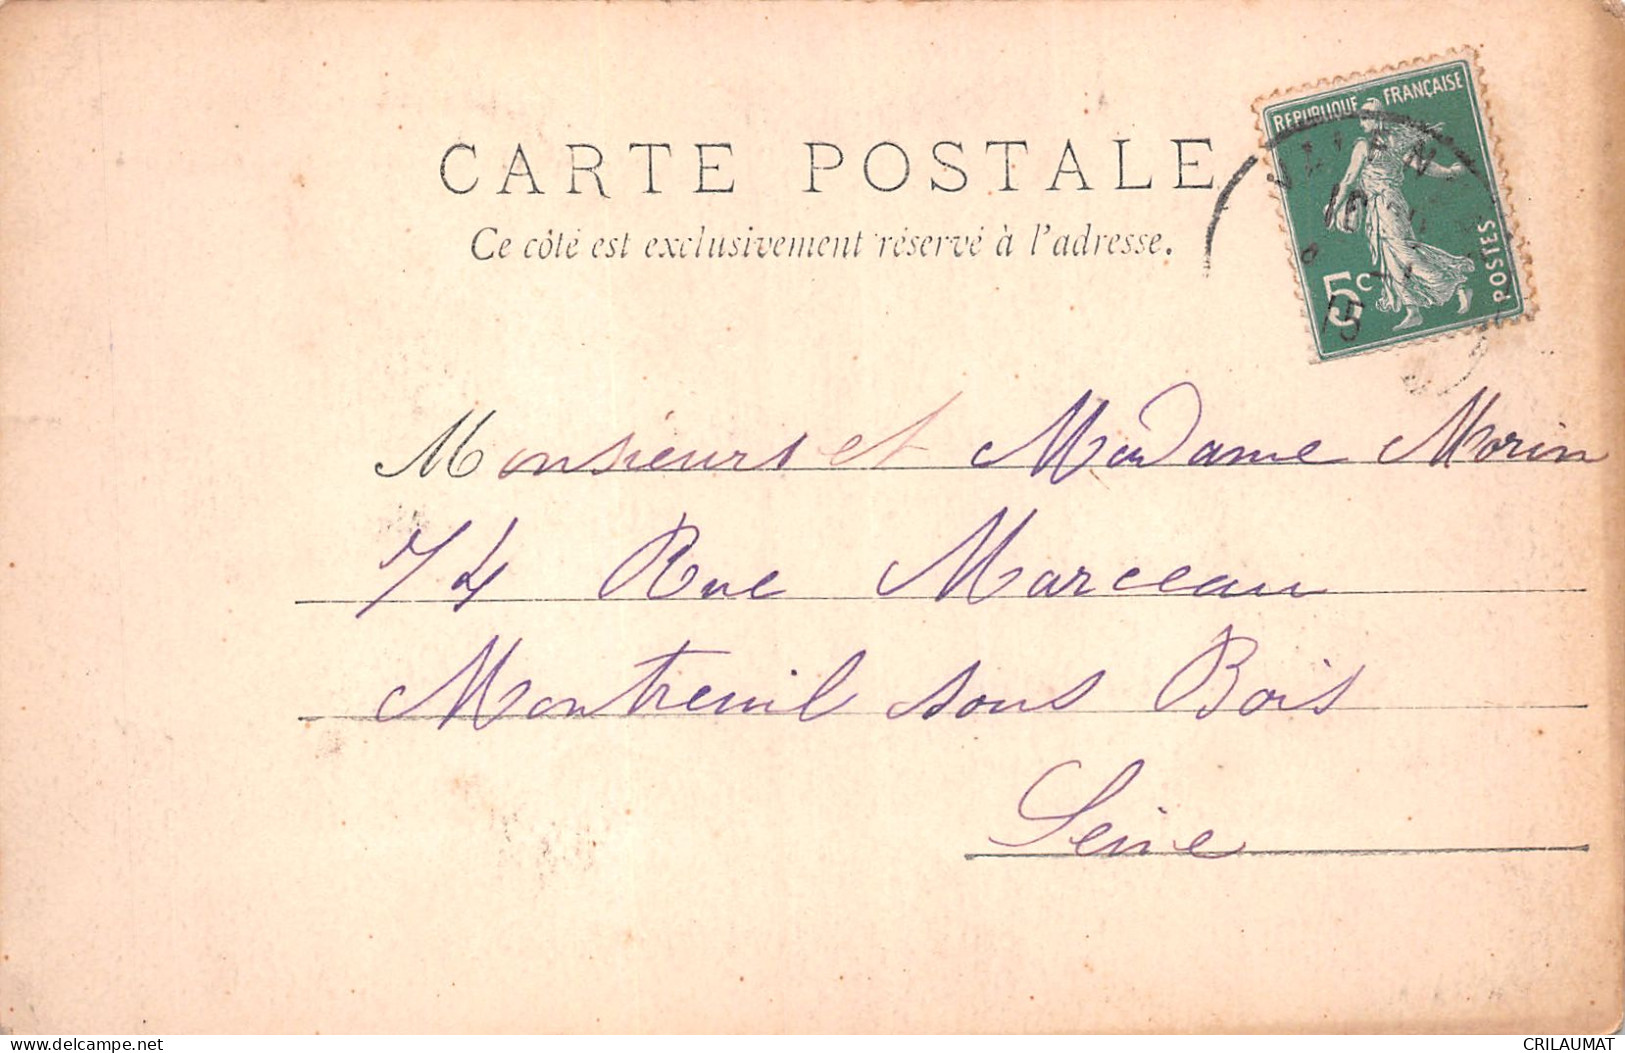 CARTE POSTALE
Ce côté est exclusivement réservé à l'adresse.
REPUBLIQUE FRANÇAISE
5c
POSTES
15
Monsieurs et Madame Morin
74 Rue Marceau
Montreuil sous Bois
Seine
www.delcampe.net
CRILAUMAT